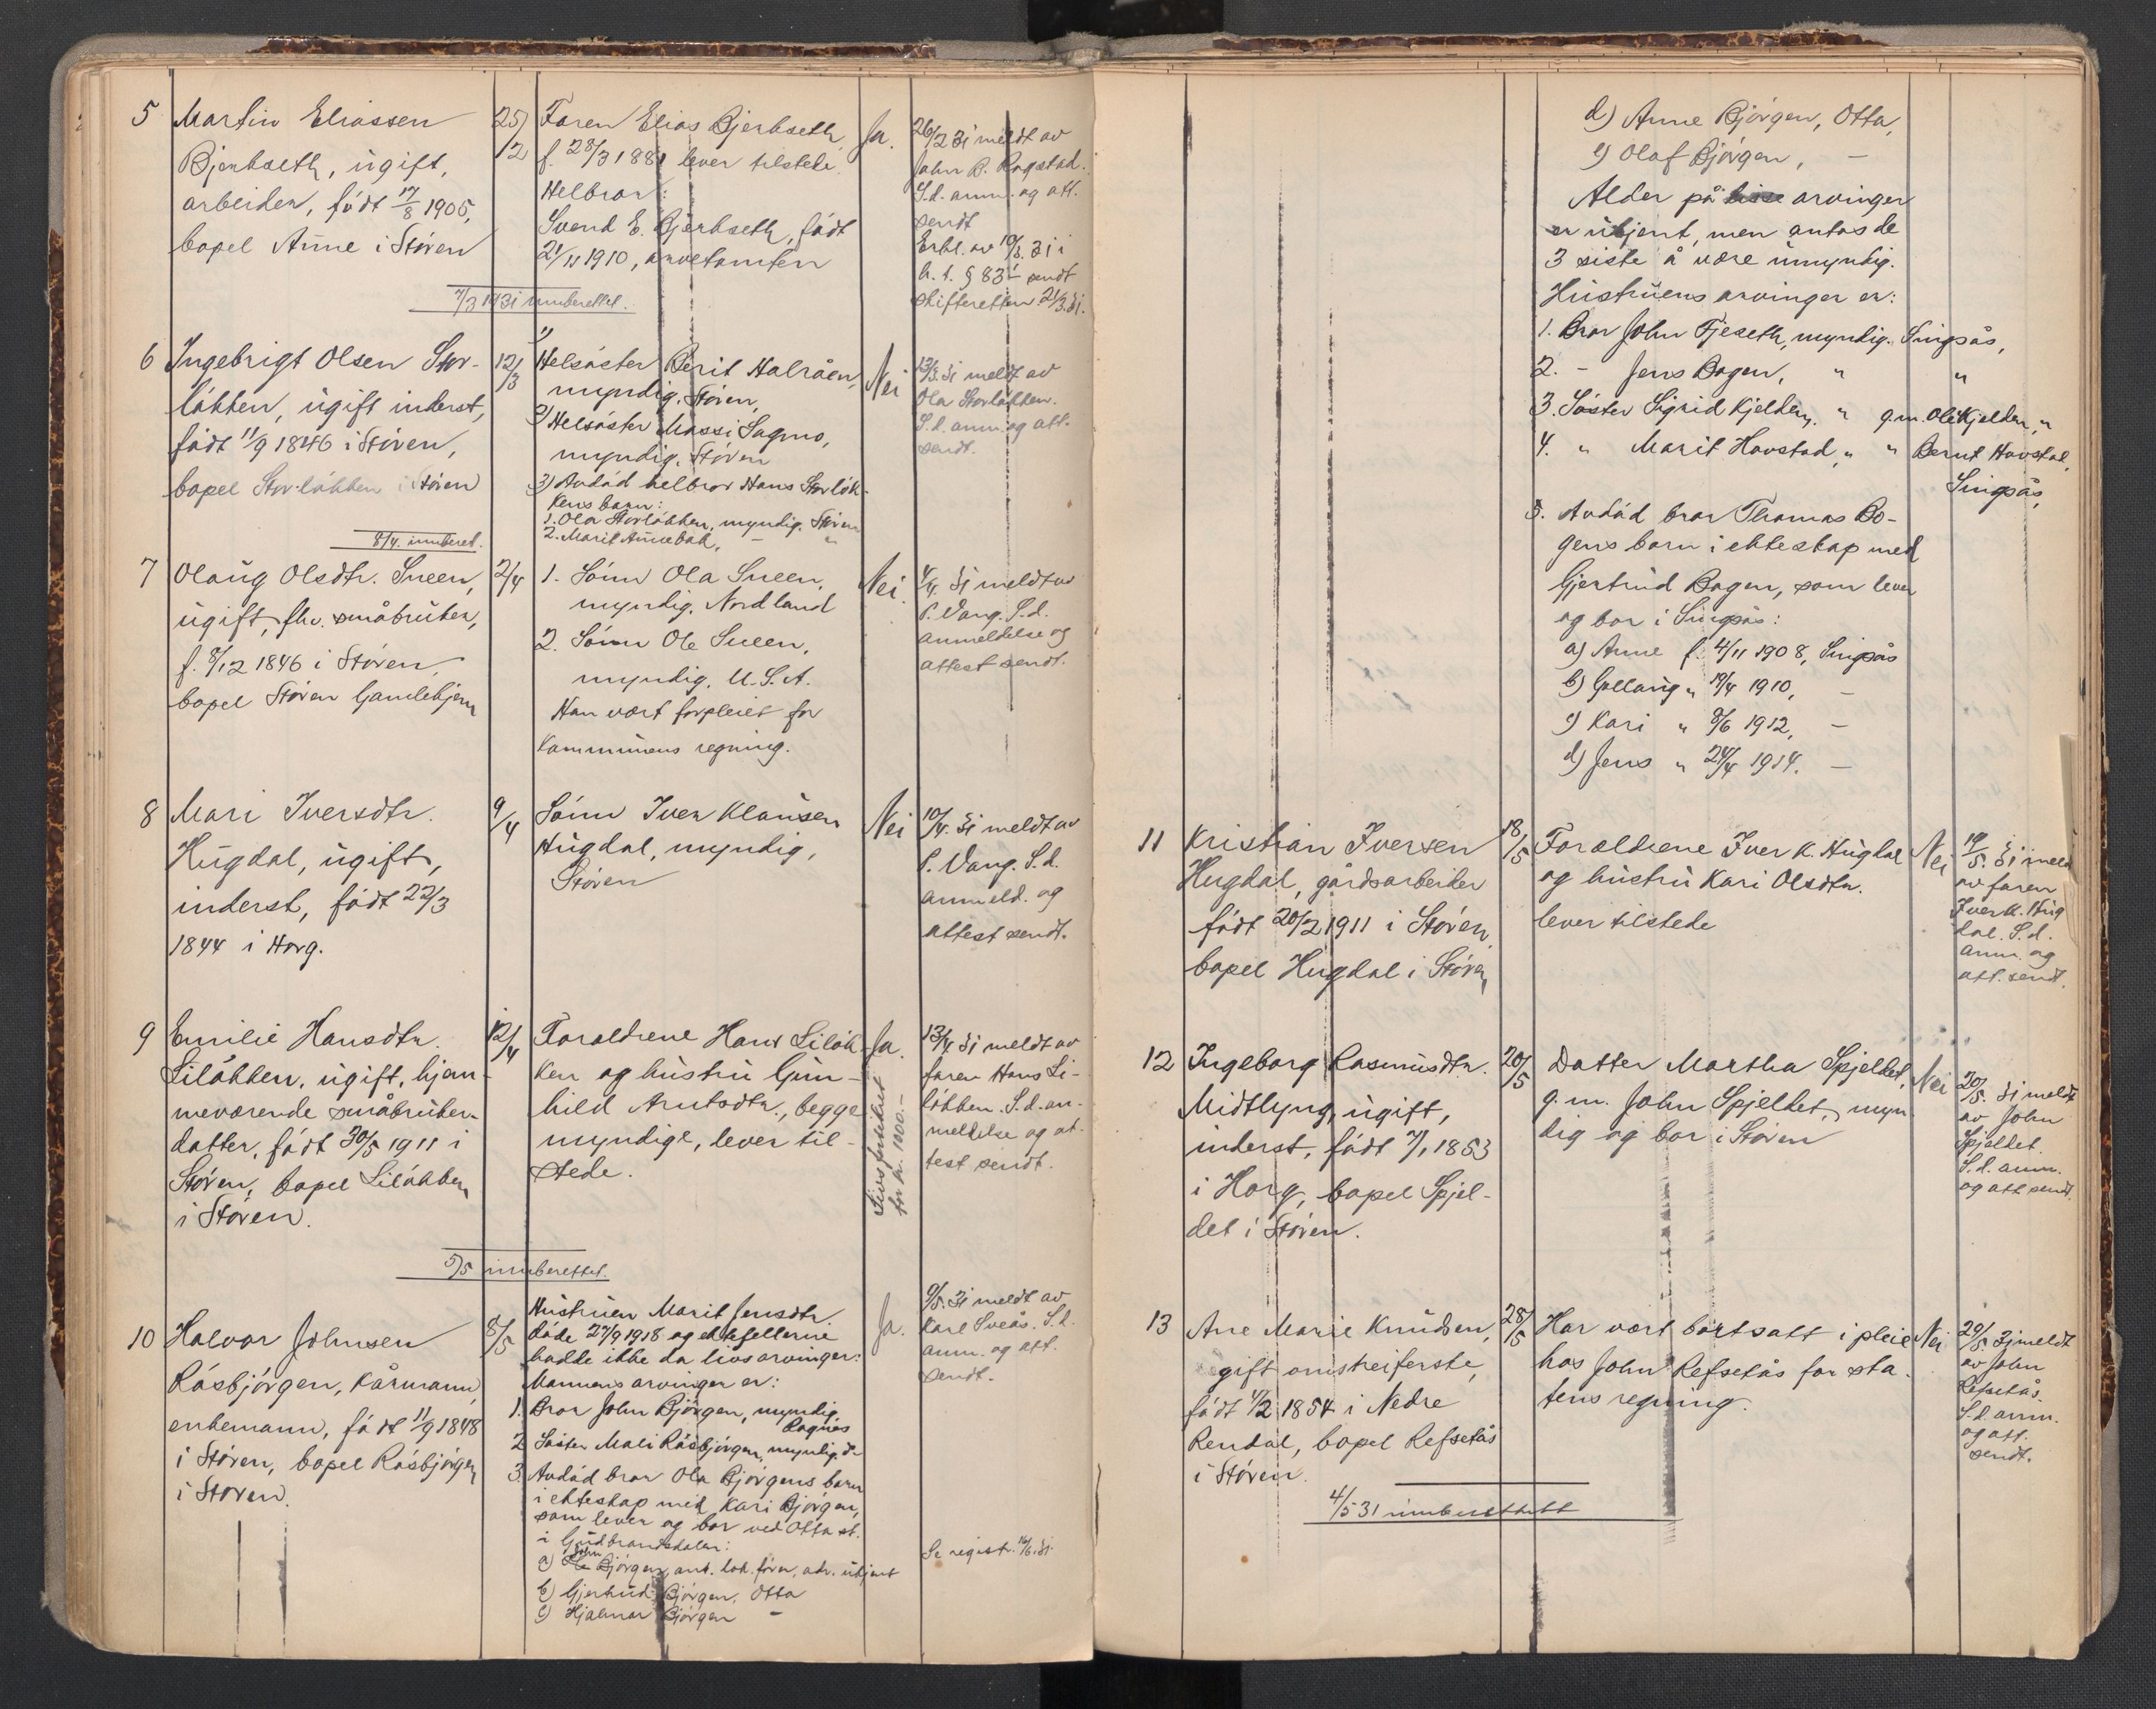 5
Martin Eliassen
Bjerkseth, ugift,
arbeider, født 17/8 1905,
bopel Aune i Støren
25/2
Faren Elias Bjerkseth,
f. 28/3 1881 lever tilstede.
Helbror:
Svend E. Bjerkseth, født
21/11 1910, arvetomten
Ja.
26/2 31 meldt av
John P. Rogstad.
S.d. anm. og att.
sendt
Erkl. av 19/3. 31 i
h. t. § 83 sendt
skifteretten 21/3. 31.
7/3 1931 innberettet.
6
Ingebrigt Olsen Stor-
løkken, ugift inderst,
født 11/9 1846 i Støren,
bopel Storløkken i Støren
12/3
1) Helsøster Berit Halråen,
myndig, Støren,
2) Helsøster Massi Sagmo,
myndig, Støren
3) Avdød helbror Hans Storløk-
kens barn:
1. Ola Storløkken, myndig, Støren
2. Marit Aunebak, - "
Nei
13/3. 31 meldt av
Ola Storløkken.
S.d. anm. og att.
sendt.
8/4. innberet.
7
Olaug Olsdtr. Sneen,
ugift, fhv. småbruker,
f. 8/12 1846 i Støren,
bopel Støren Gamlehjem
2/4
1. Sønn Ola Sneen,
myndig, Nordland
2. Sønn Ole Sneen,
myndig, U.S.A.
Han vært forpleiet for
kommunens regning.
Nei.
4/4. 31 meldt av
P. Vang. S.d.
anmeldelse og
attest sendt.
8
Mari Iversdtr.
Hugdal, ugift,
inderst, født 22/3
1844 i Horg.
9/4
Sønn Iver Klausen
Hugdal, myndig,
Støren
Nei
10/4. 31 meldt av
P. Vang. S.d.
anmeld. og
attest sendt.
9
Emilie Hansdtr.
Liløkken, ugift, hjem-
meværende småbruker-
datter, født 30/5 1911 i
Støren, bopel Liløkken
i Støren.
12/4
Foreldrene Hans Liløk-
ken og hustru Gun-
hild Arntsdtr., begge
myndige, lever til-
stede.
Ja.
Livsforsikret
for kr. 1000.-
13/4 31 meldt av
faren Hans Li-
løkken. S.d. an-
meldelse og at-
test sendt.
5/5 innberettet.
10
Halvor Johnsen
Råsbjørgen, kårmann,
enkemann, født 11/9 1848
i Støren, bopel Råsbjørgen
i Støren.
8/5
Hustruen Marit Jensdtr.
døde 27/9 1918 og ektefellerne
hadde ikke da livsarvinger:
Mannens arvinger er:
1. Bror John Bjørgen, myndig,
Rognes
2. Søster Mali Råsbjørgen, myndig, do
3. Avdød bror Ola Bjørgens barn
i ekteskap med Kari Bjørgen,
som lever og bor ved Otta st.
i Gudbrandsdalen:
a) John Bjørgen, ant. lok.fører, adr. ukjent
b) Gjertrud Bjørgen, Otta
c) Hjalmar Bjørgen -
Ja.
9/5. 31 meldt av
Karl Sveås. S.d.
anm. og att.
sendt.
Se registr. 16/6. 31.
d) Anne Bjørgen, Otta,
e) Olaf Bjørgen, -
Alder på disse arvinger
er ukjent, men antas de
3 siste å være umyndig.
Hustruens arvinger er:
1. Bror John Fjeseth, myndig. Singsås,
2. - Jens Bogen, " "
3. Søster Sigrid Kjelden, " g.m. Ole Kjelden, "
4. " Marit Havstad, " " Bernt Havstad,
Singsås,
5. Avdød bror Thomas Bo-
gens barn i ekteskap med
Gjertrud Bogen, som lever
og bor i Singsås:
a) Anne f. 4/11 1908, Singsås
b) Gollaug " 19/4 1910, -
c) Kari " 8/6 1912, -
d) Jens " 24/4 1914. -
11
Kristian Iversen
Hugdal, gårdsarbeider
født 20/2 1911 i Støren,
bopel Hugdal i Støren,
18/5
Foreldrene Iver K. Hugdal
og hustru Kari Olsdtr.
lever tilstede
Nei
19/5. 31 meldt
av faren
Iver K. Hug
dal. S.d.
anm. og
att. sendt.
12
Ingeborg Rasmusdtr.
Midtlyng, ugift,
inderst, født 7/1 1853
i Horg, bopel Spjel-
det i Støren.
20/5
Datter Martha Spjeldet,
g.m. John Spjeldet, myn-
dig og bor i Støren
Nei
20/5. 31 meldt
av John
Spjeldet.
S.d. anm.
og att sendt.
13
Ane Marie Knudsen,
gift omstreiferske,
født 4/2 1854 i Nedre
Rendal, bopel Refsetås
i Støren.
28/5
Har vært bortsatt i pleie
hos John Refsetås for sta-
tens regning.
Nei
29/5. 31 meldt
av John
Refsetås.
S.d. anm.
og att.
sendt.
4/5 31 innberettet